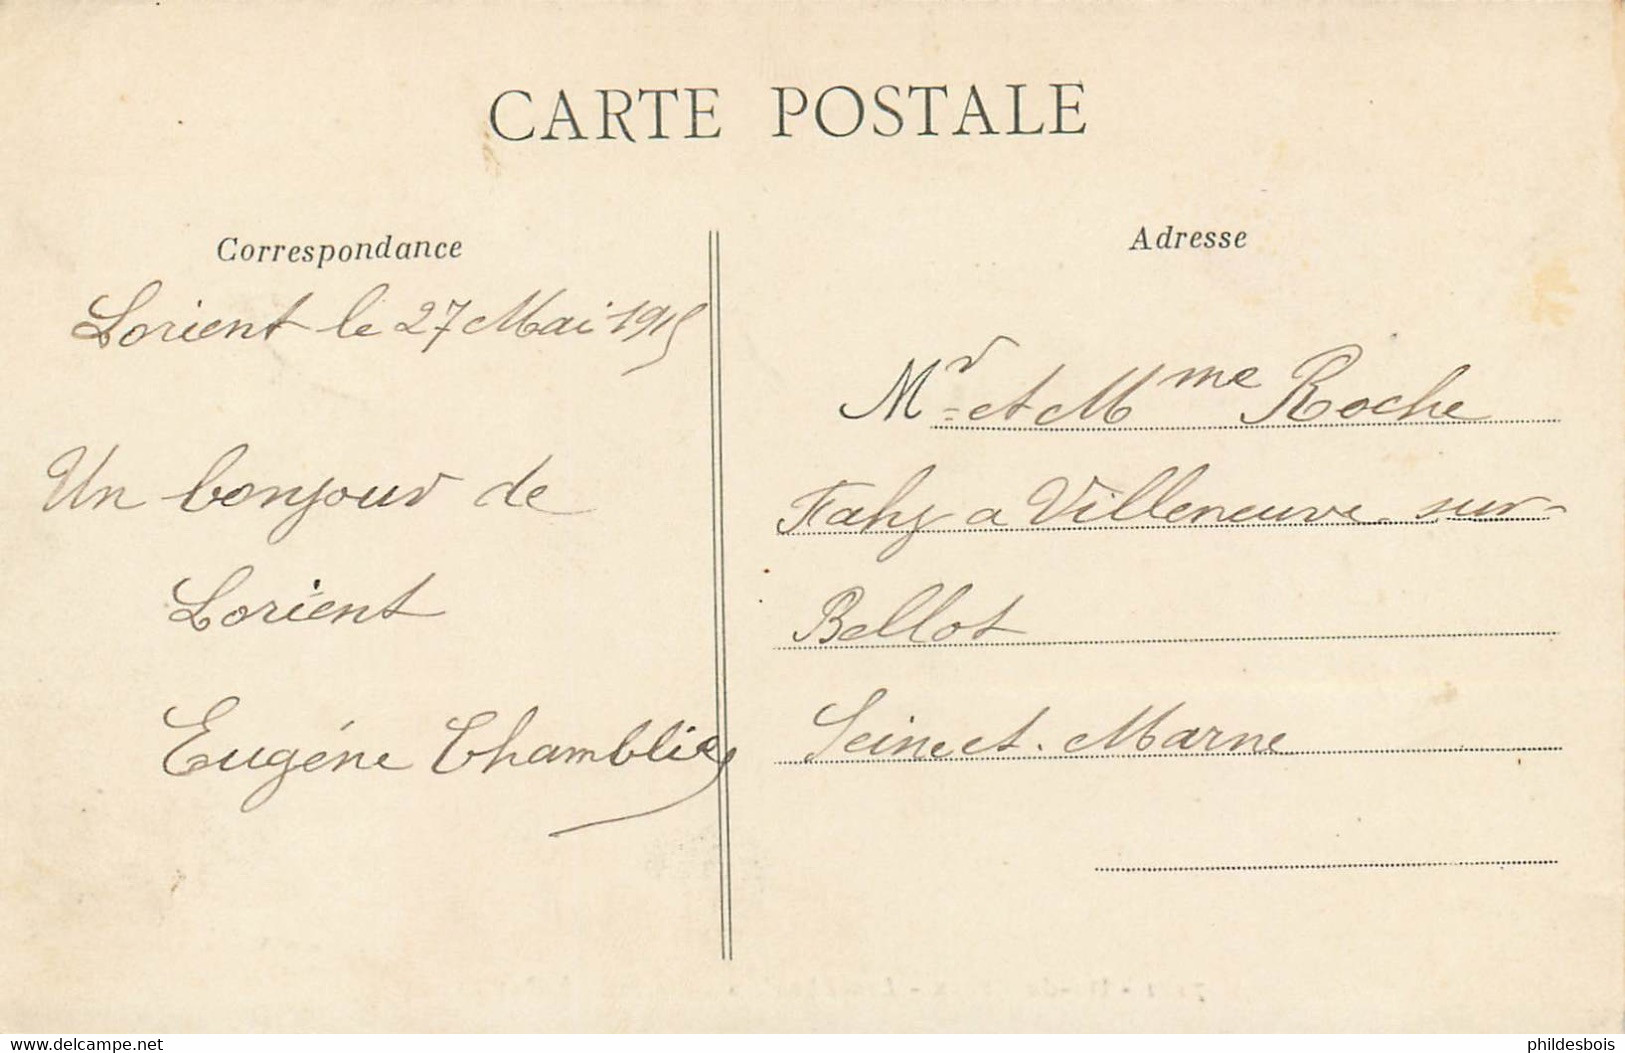 CARTE POSTALE
Correspondance
Lorient le 27 Mai 1915
Un bonjour de
Lorient
Eugéne
Adresse
Mr et Mme Roche
Fahy a Villeneuve-sur-
Bellot
Seine et. Marne
www.delcampe.net
phildesbois